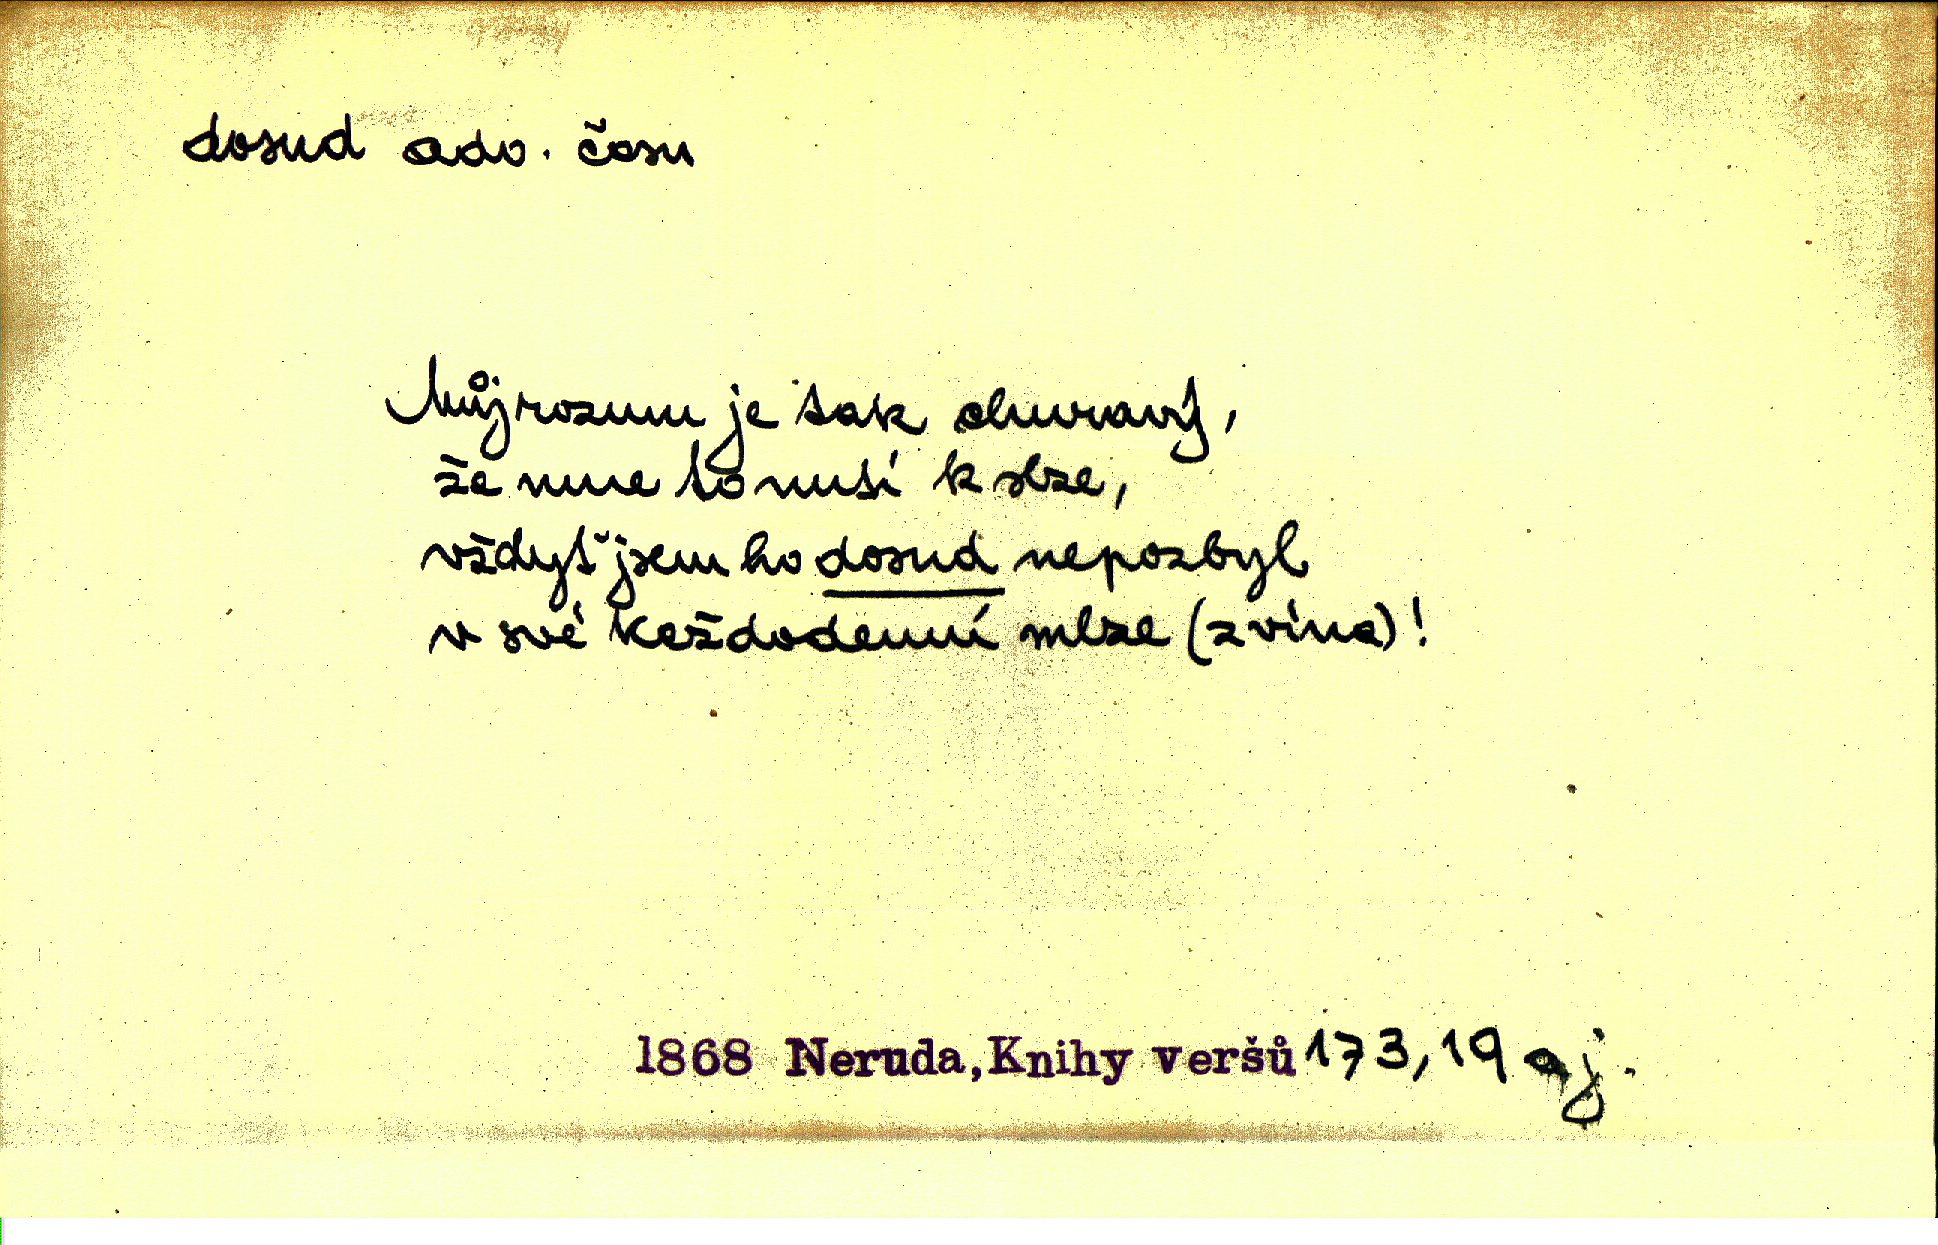 dosud adv. času
Můj rozum je tak churavý,
že mne to nutí k slze,
vždyť jsem ho dosud nepozbyl
v své každodenní mlze (z vína)!
1868 Neruda, Knihy veršů 173, 19 aj.